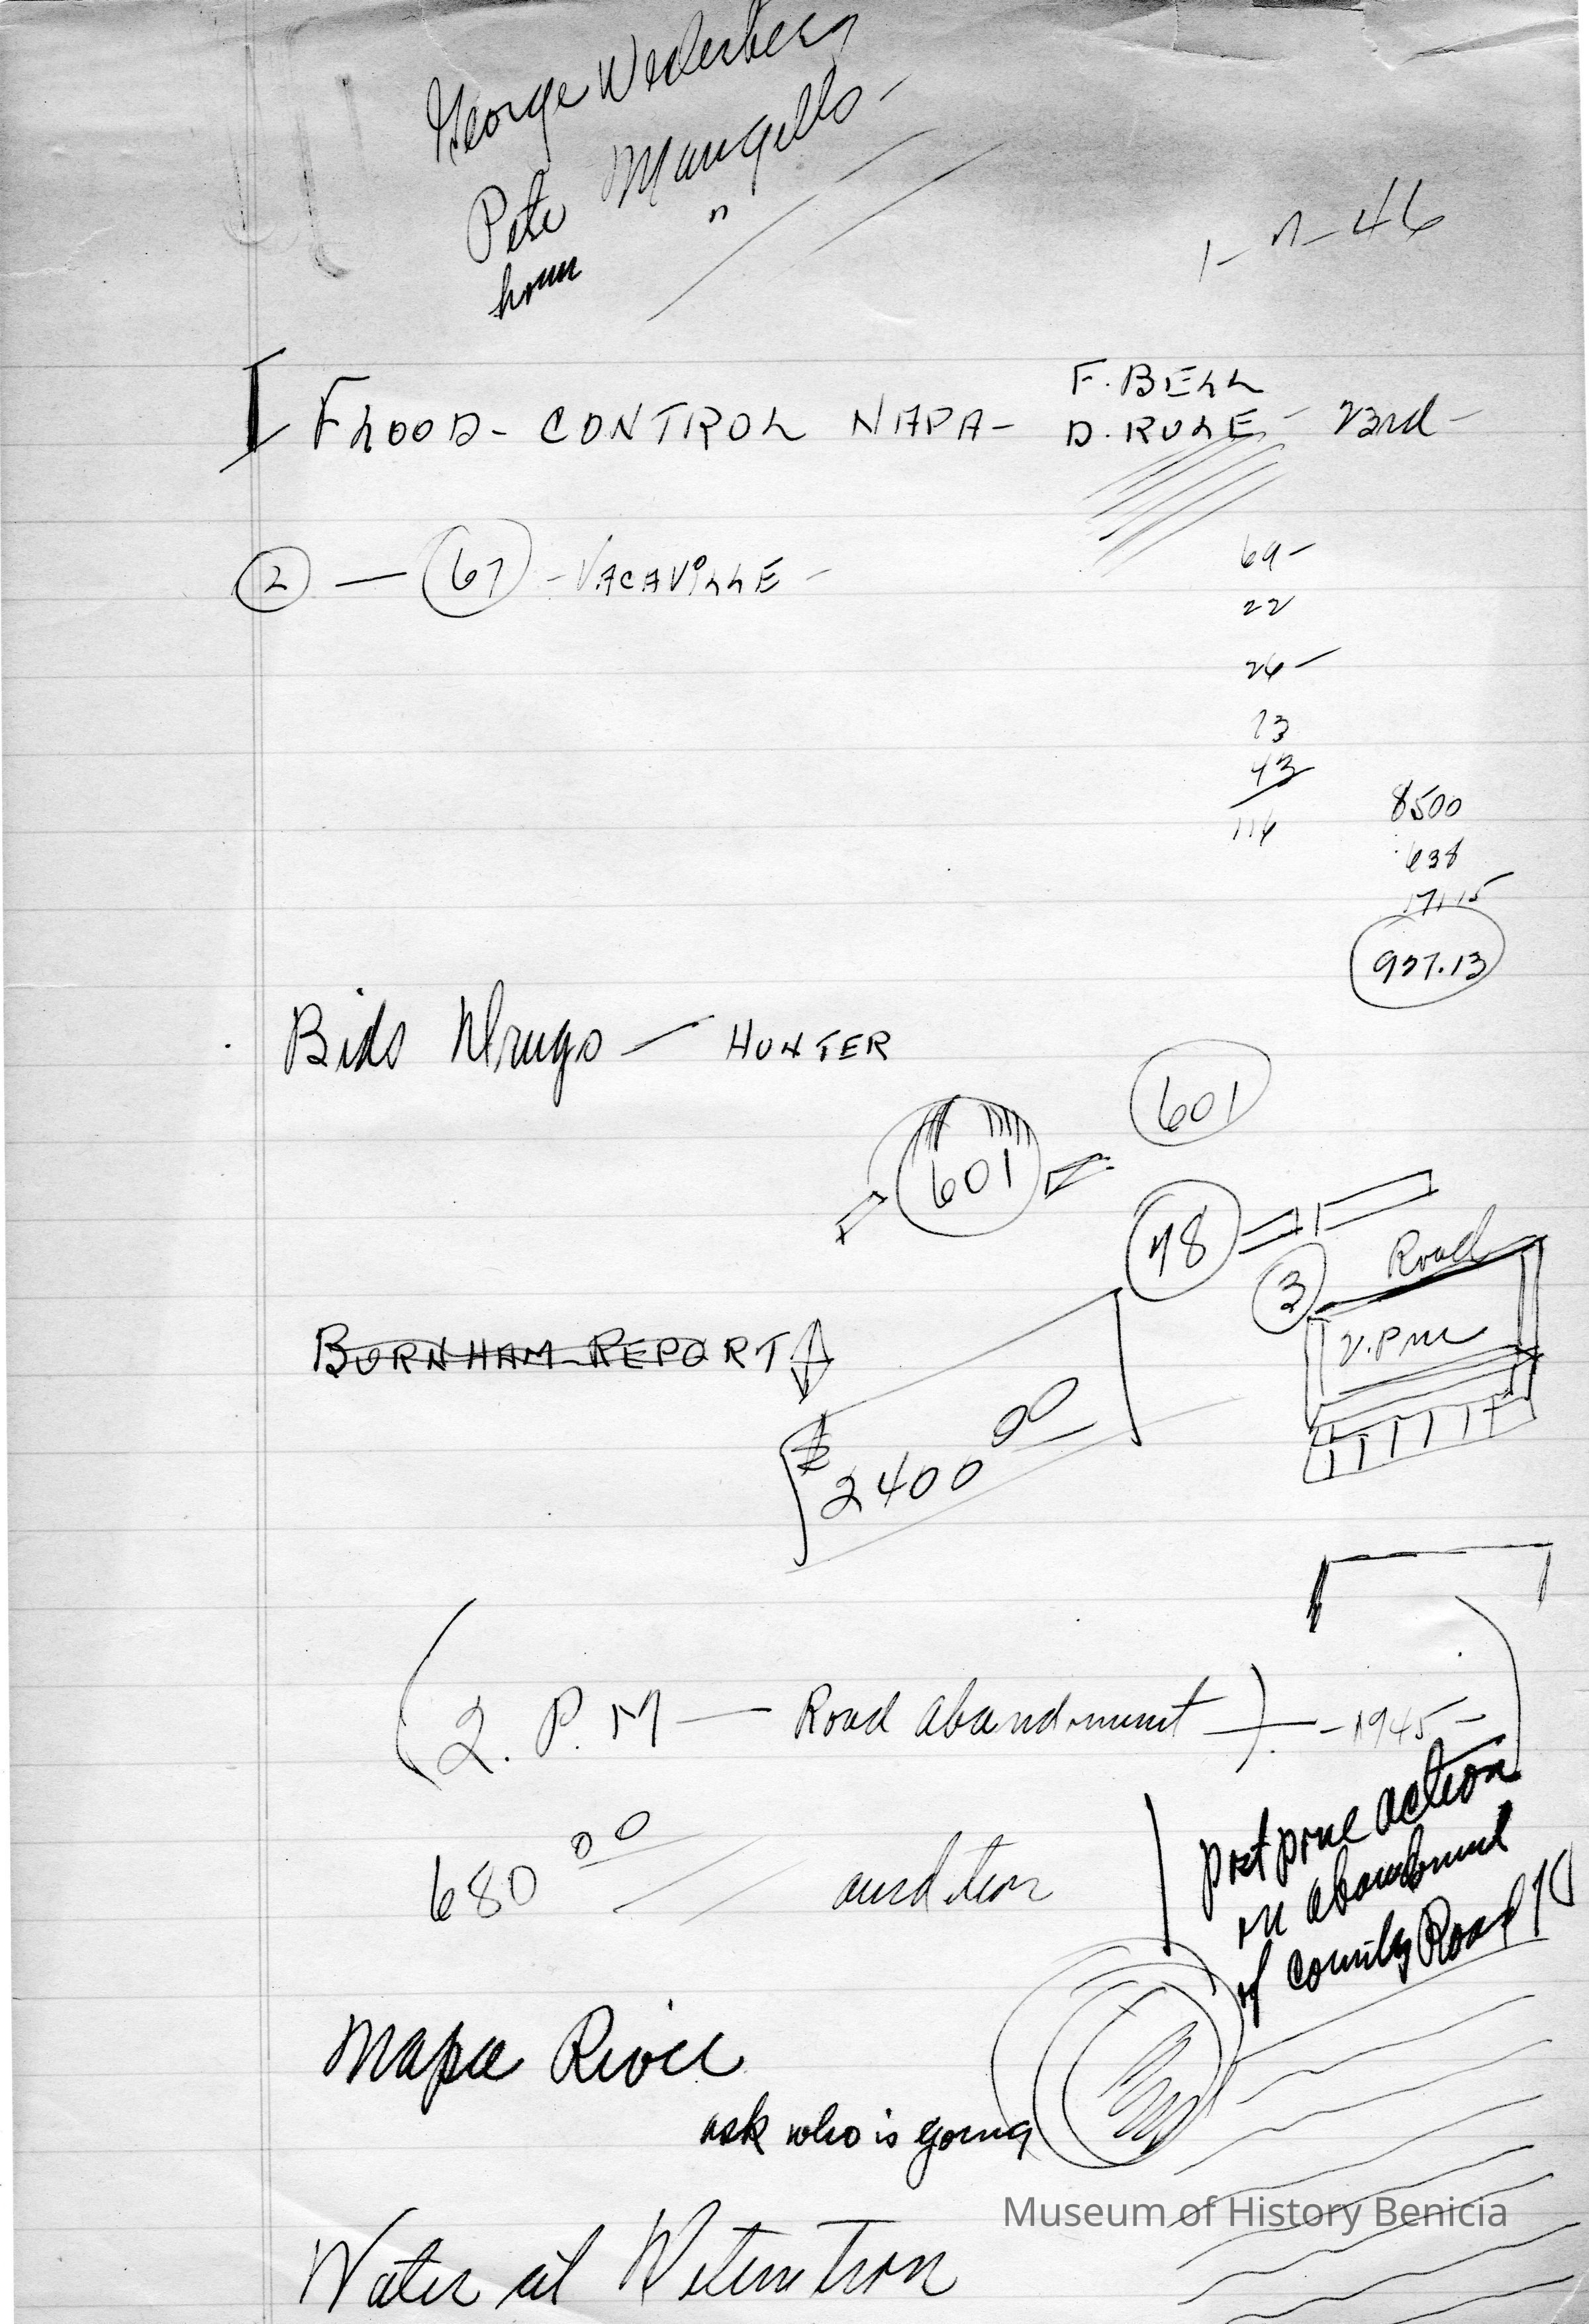 George Wederberg
Pete Mangells -
home "
1-7-46
FLOOD - CONTROL NAPA - F. BELL
D. RULE - 23rd -
2 — 67 - VACAVILLE -
69 -
22
24 -
73
43
116
8500
638
927.13
Bids Drugs — HUNTER
601
601
78
3
Road
2.Pm
BURNHAM REPORT
$2400 00
(2. P. M — Road abandonment) - 1945 -
680 00
Postpone action
on abandonment
of County Road
Napa River
ask who is going
Water at Detention
Museum of History Benicia